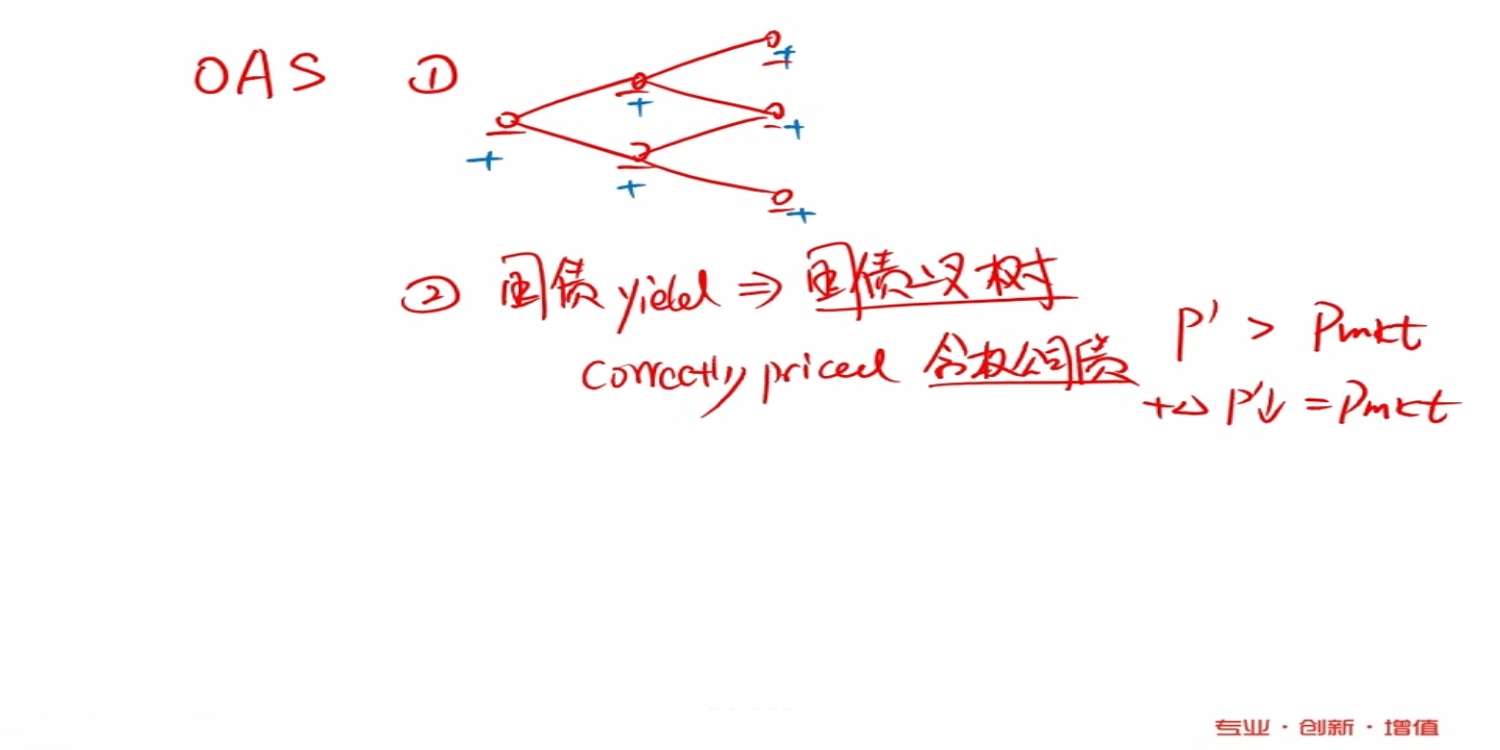 OAS ①
+ + + + + +
② 国债 yield ⇒ 国债二叉树
correctly priced 含权公司债 P' > Pmkt
+△ P'↓ = Pmkt
专业·创新·增值